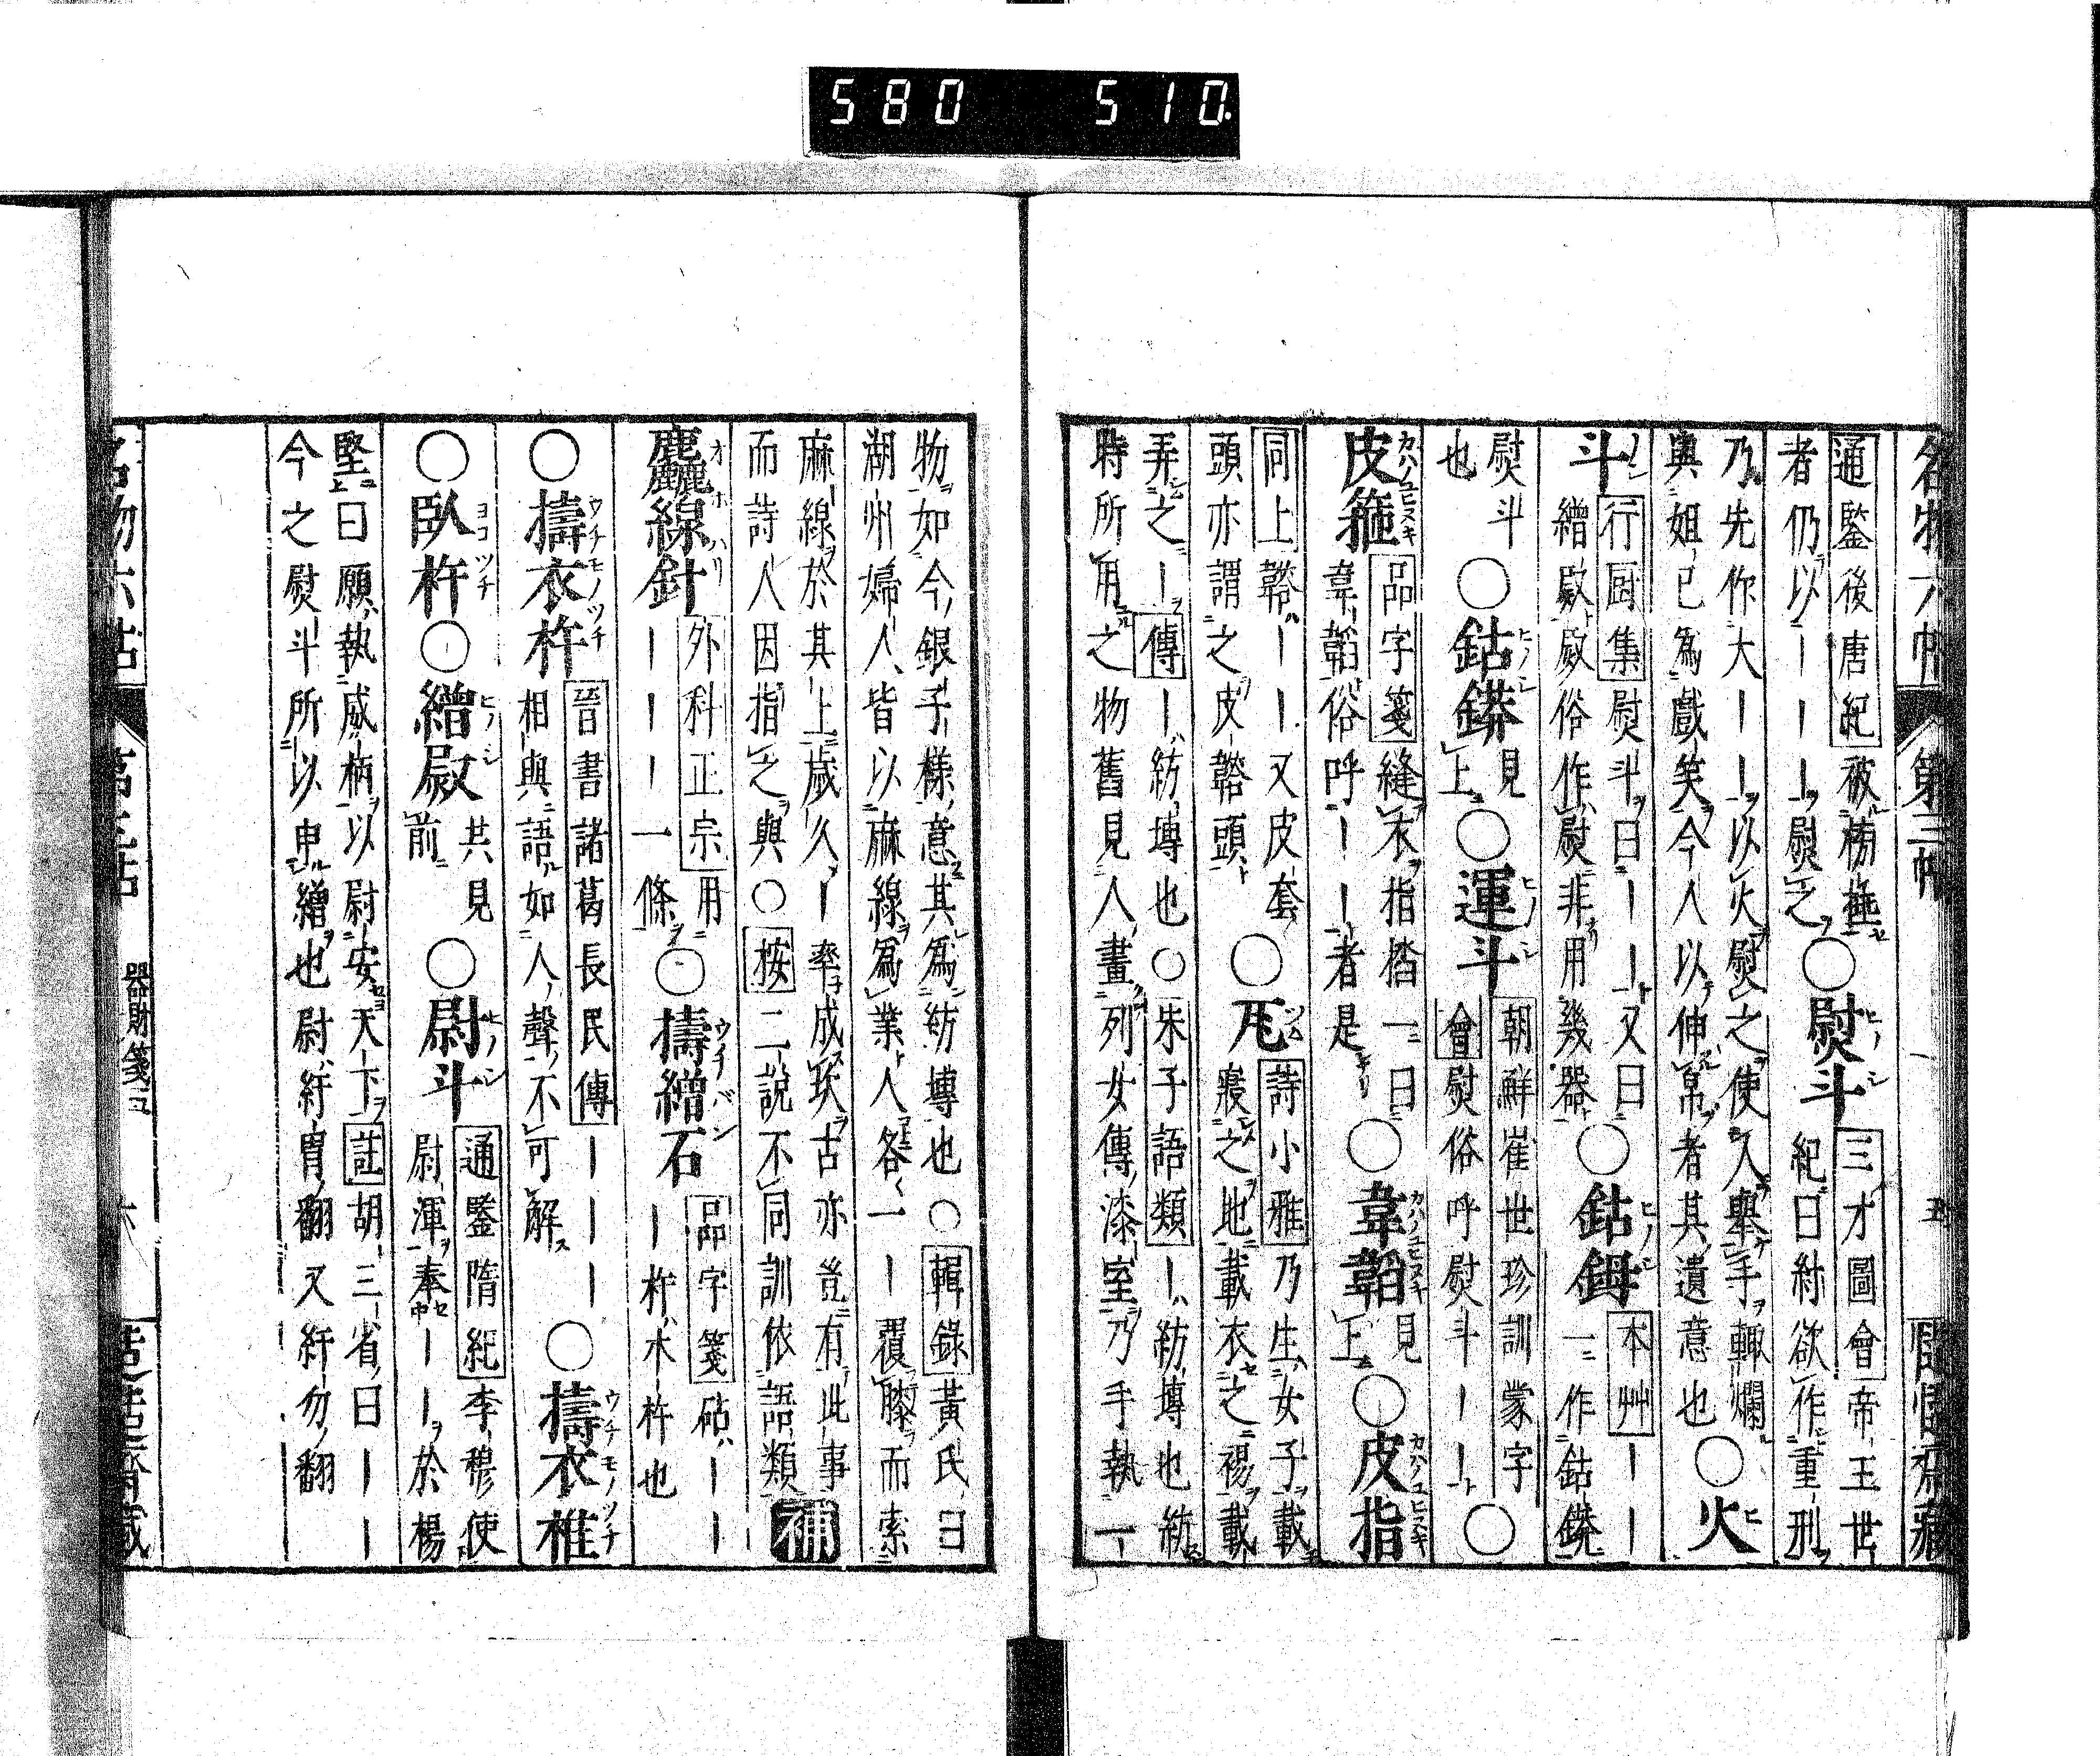 580 510
名物六帖 第三帖 五
通鑒後唐紀被栲
者仍以ーーー熨之○熨斗三才圖會帝王世
紀曰紂欲作重刑
乃先作大ーー以火熨之使人舉手輒爛
與妲己爲戲笑今人以伸帛者其遺意也○火
斗行厨集熨斗曰ーー又曰
繒㷉㷉俗作熨非用幾器○鈷鉧本艸ーー
一作鈷𨫼
熨斗
也○鈷𨫼見上○運斗朝鮮崔世珍訓蒙字
會熨俗呼熨斗ーー○
皮箍品字箋縫衣指揸一曰
韋韜俗呼ーー者是○韋韜見上○皮指
同上韐ーー又皮套
頭亦謂之皮韐頭○瓦詩小雅乃生女子載
寢之地載衣之裼載
弄之ー傳ー紡塼也○朱子語類ー紡塼也紡
時所用之物舊見人畫列女傳漆室乃手執一
物如今銀子樣意其爲紡塼也○輯錄黃氏曰
湖州婦人皆以麻線爲業人各一ー覆膝而索
麻線於其上歲久ー率成玦古亦豈有此事
而詩人因指之與○按二說不同訓依語類補
麤線針外科正宗用
ーーー一條○擣繒石品字箋砧ーー
ー杵木杵也
○擣衣杵晉書諸葛長民傳ーーー
相與語如人聲不可解○擣衣椎
○臥杵○繒㷉共見前○尉斗通鑒隋紀李穆使
尉渾奉ーー於楊
堅曰願執威柄以尉安天下註胡三省曰ーー
今之熨斗所以申繒也尉紆胃翻又紆勿翻
器財箋二 六